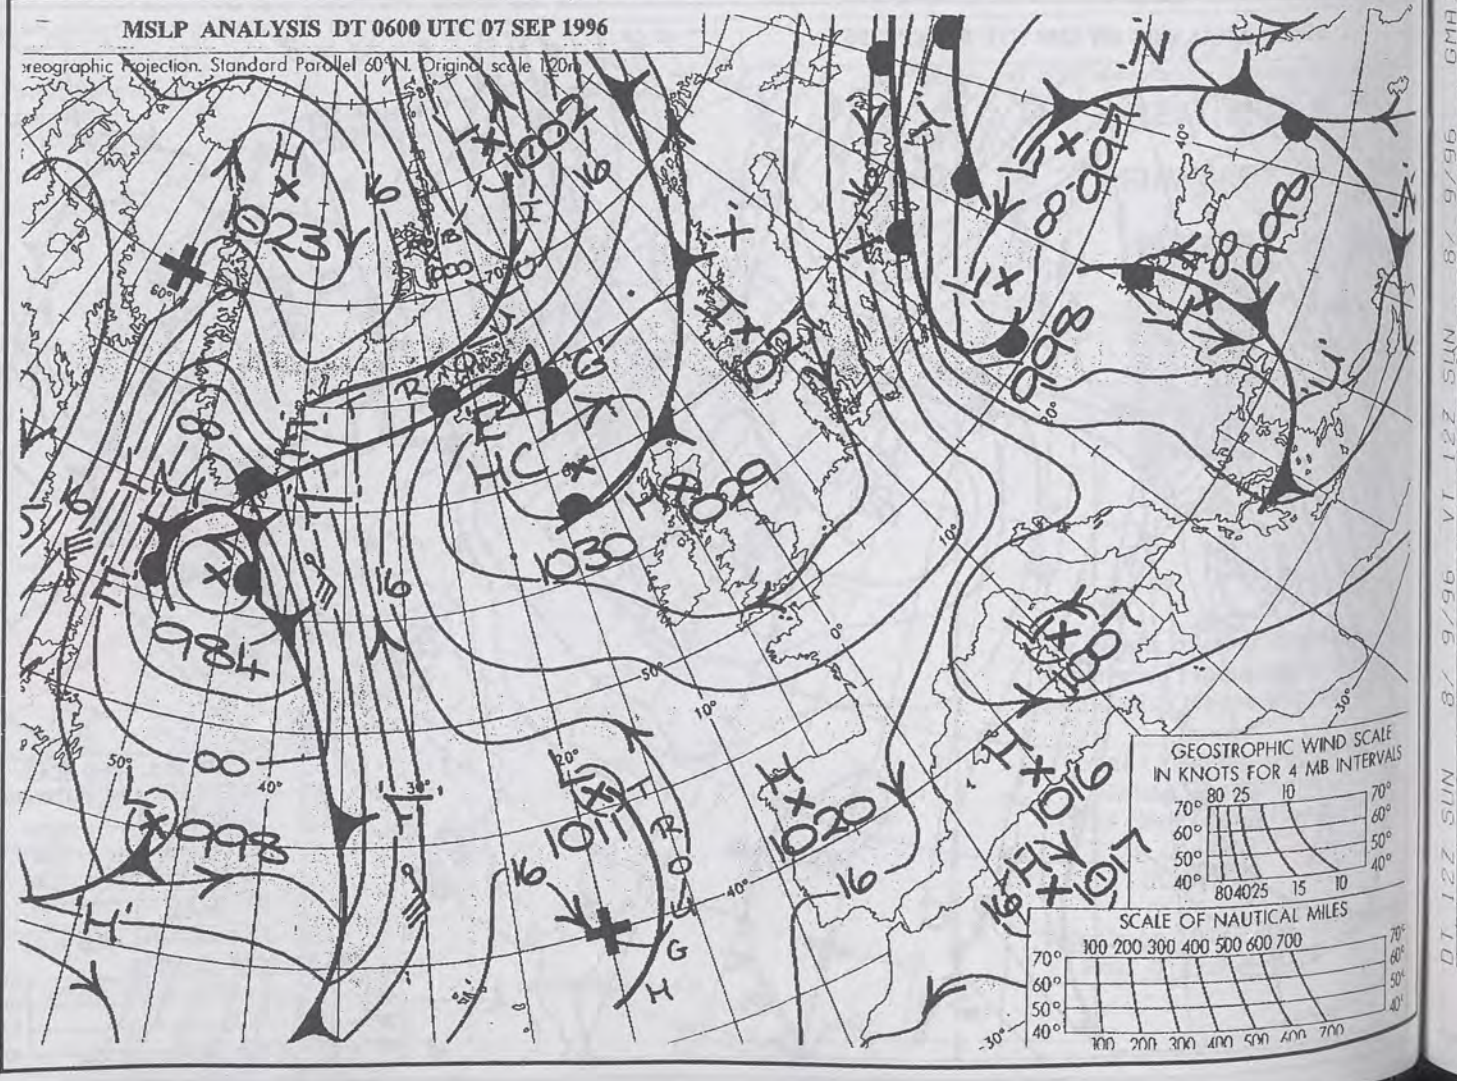 MSLP ANALYSIS DT 0600 UTC 07 SEP 1996
reographic Projection. Standard Parallel 60°N. Original scale 1:20m
H
1023
16
L
1002
16
1000
70°
60°
H
1021
16
L
1007
8
40°
8
1008
L
1008
L
0°
10°
R
G
'E'
HC
1030
H
1029
8
16
984
16
0°
50°
10°
L
1007
30°
50°
40°
30°
20°
L
998
'H'
L
1011
T
R
O
U
G
H
16
40°
H
1020
16
H
1016
H
1017
16
-30°
GEOSTROPHIC WIND SCALE
IN KNOTS FOR 4 MB INTERVALS
80 25 10
70° 70°
60° 60°
50° 50°
40° 40°
80 40 25 15 10
SCALE OF NAUTICAL MILES
100 200 300 400 500 600 700
70° 70°
60° 60°
50° 50°
40° 40°
100 200 300 400 500 600 700
DT 12Z SUN 8/ 9/96 VT 12Z SUN 8/ 9/96 GMA